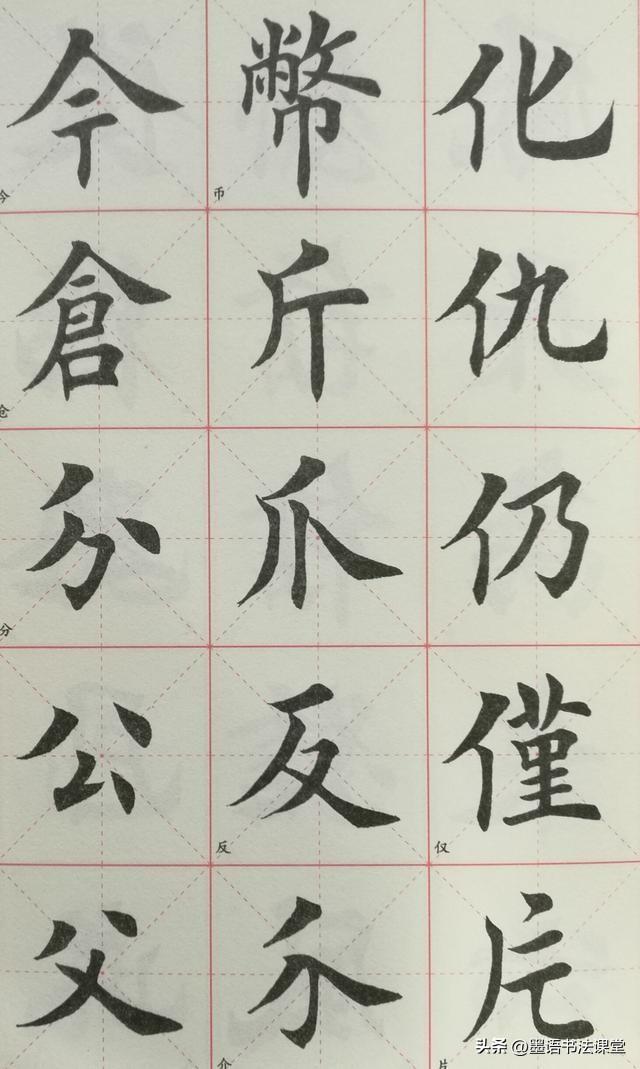 化
仇
仍
僅
仅
片
片
幣
币
斤
爪
反
反
介
介
今
今
倉
仓
分
分
公
父
头条 @墨语书法课堂